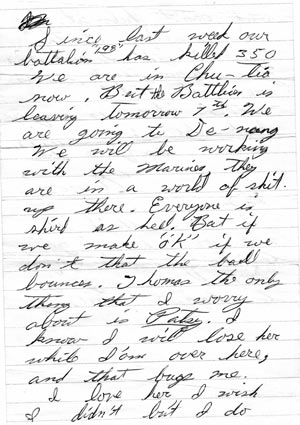 Since last week our
battalion "198" has killed 350
We are in Chu-lia
now. But the Battlion is
leaving tomorrow 7th. We
are going to De-nang
We will be working
with the Marines, they
are in a world of shit.
up there. Everyone is
as hell. But if
we make O'K' if we
don't that the ball
bounces. Thomas the only
thing that I worry
about is Patsy. I
know I will lose her
while I'am over here,
and that bugs me.
I love her I wish
I didn't but I do